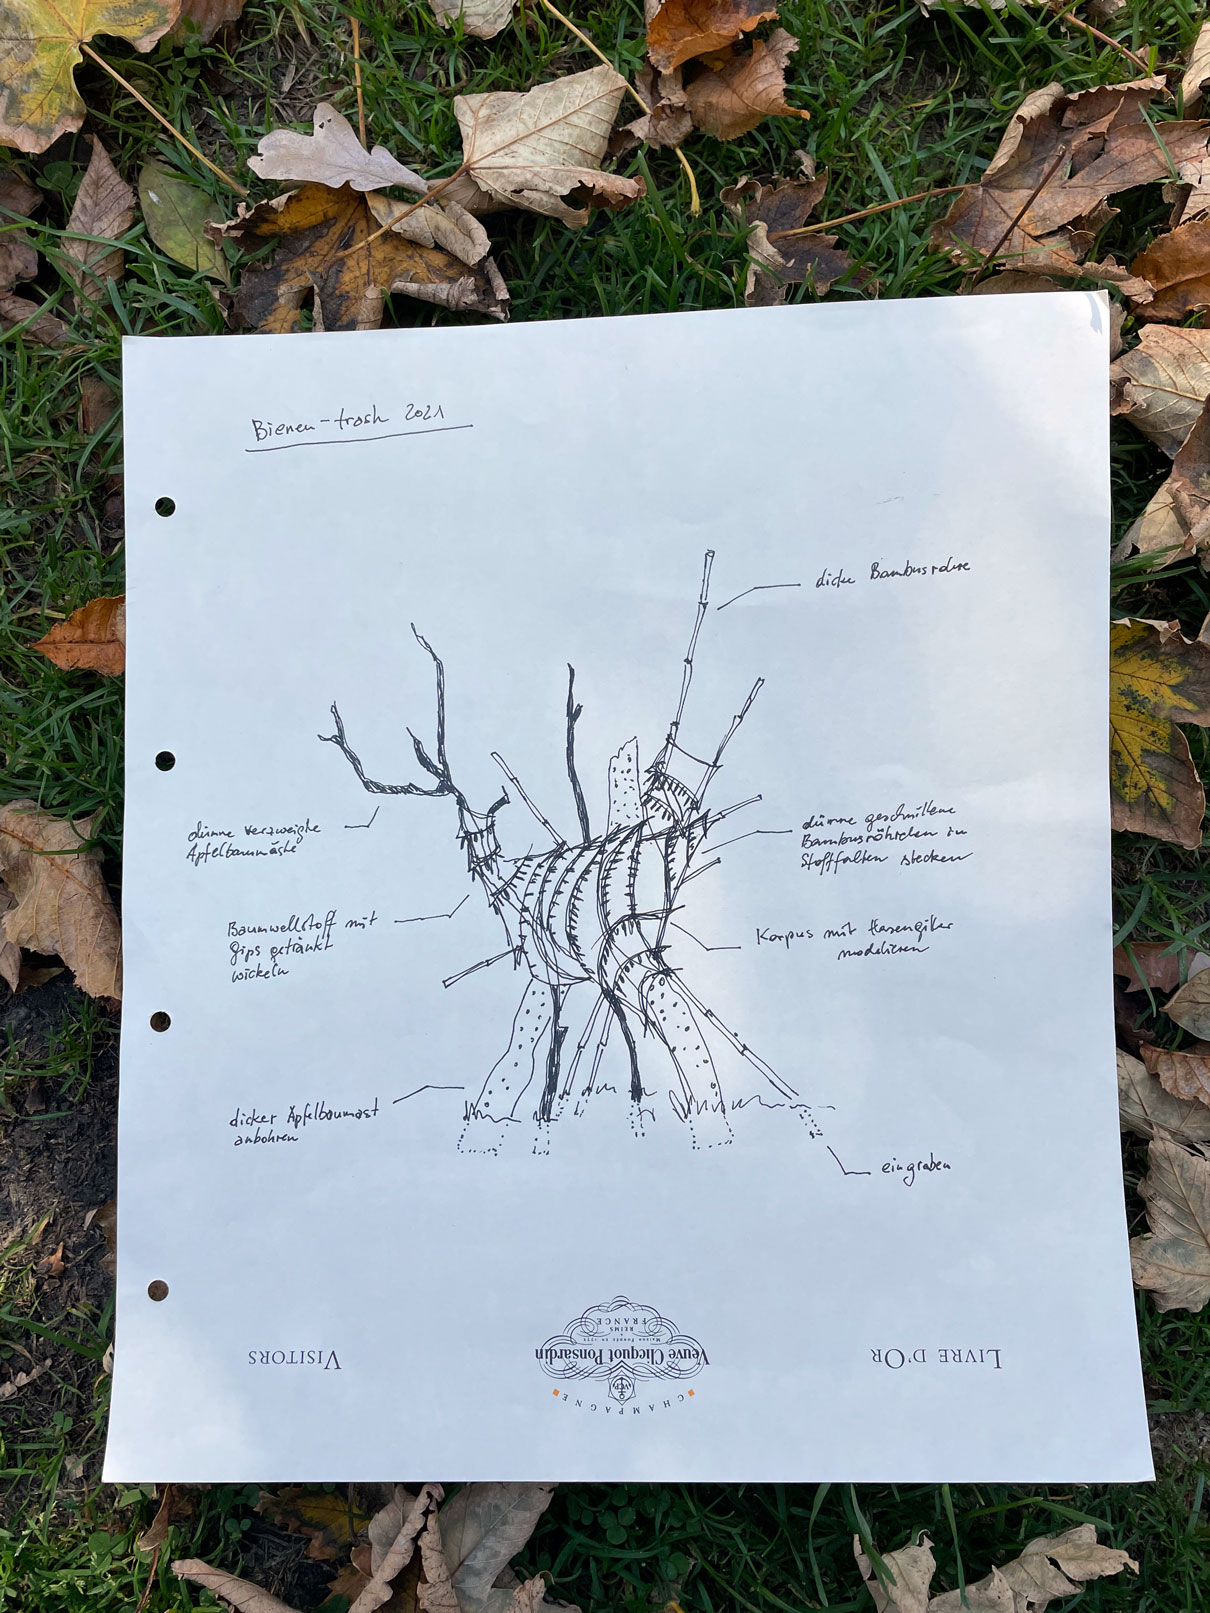 Bienen-trash 2021
dicke Bambusrohre
dünne verzweigte
Apfelbaumäste
dünne geschnittene
Bambusröhrchen in
Stofffalten stecken
Baumwollstoff mit
Gips getränkt
wickeln
Korpus mit Hasengitter
modelieren
dicker Apfelbaumast
anbohren
eingraben
CHAMPAGNE
VCP
Veuve Clicquot Ponsardin
MAISON FONDÉE EN 1772
À
REIMS
FRANCE
LIVRE D'OR
VISITORS